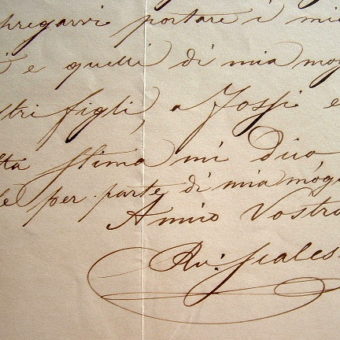 pregarvi portare i mie
i e quelli di mia mog
stri figli, a Jossi e
lta stima mi Dico,
le per parte di mia mog
Amico Vostro